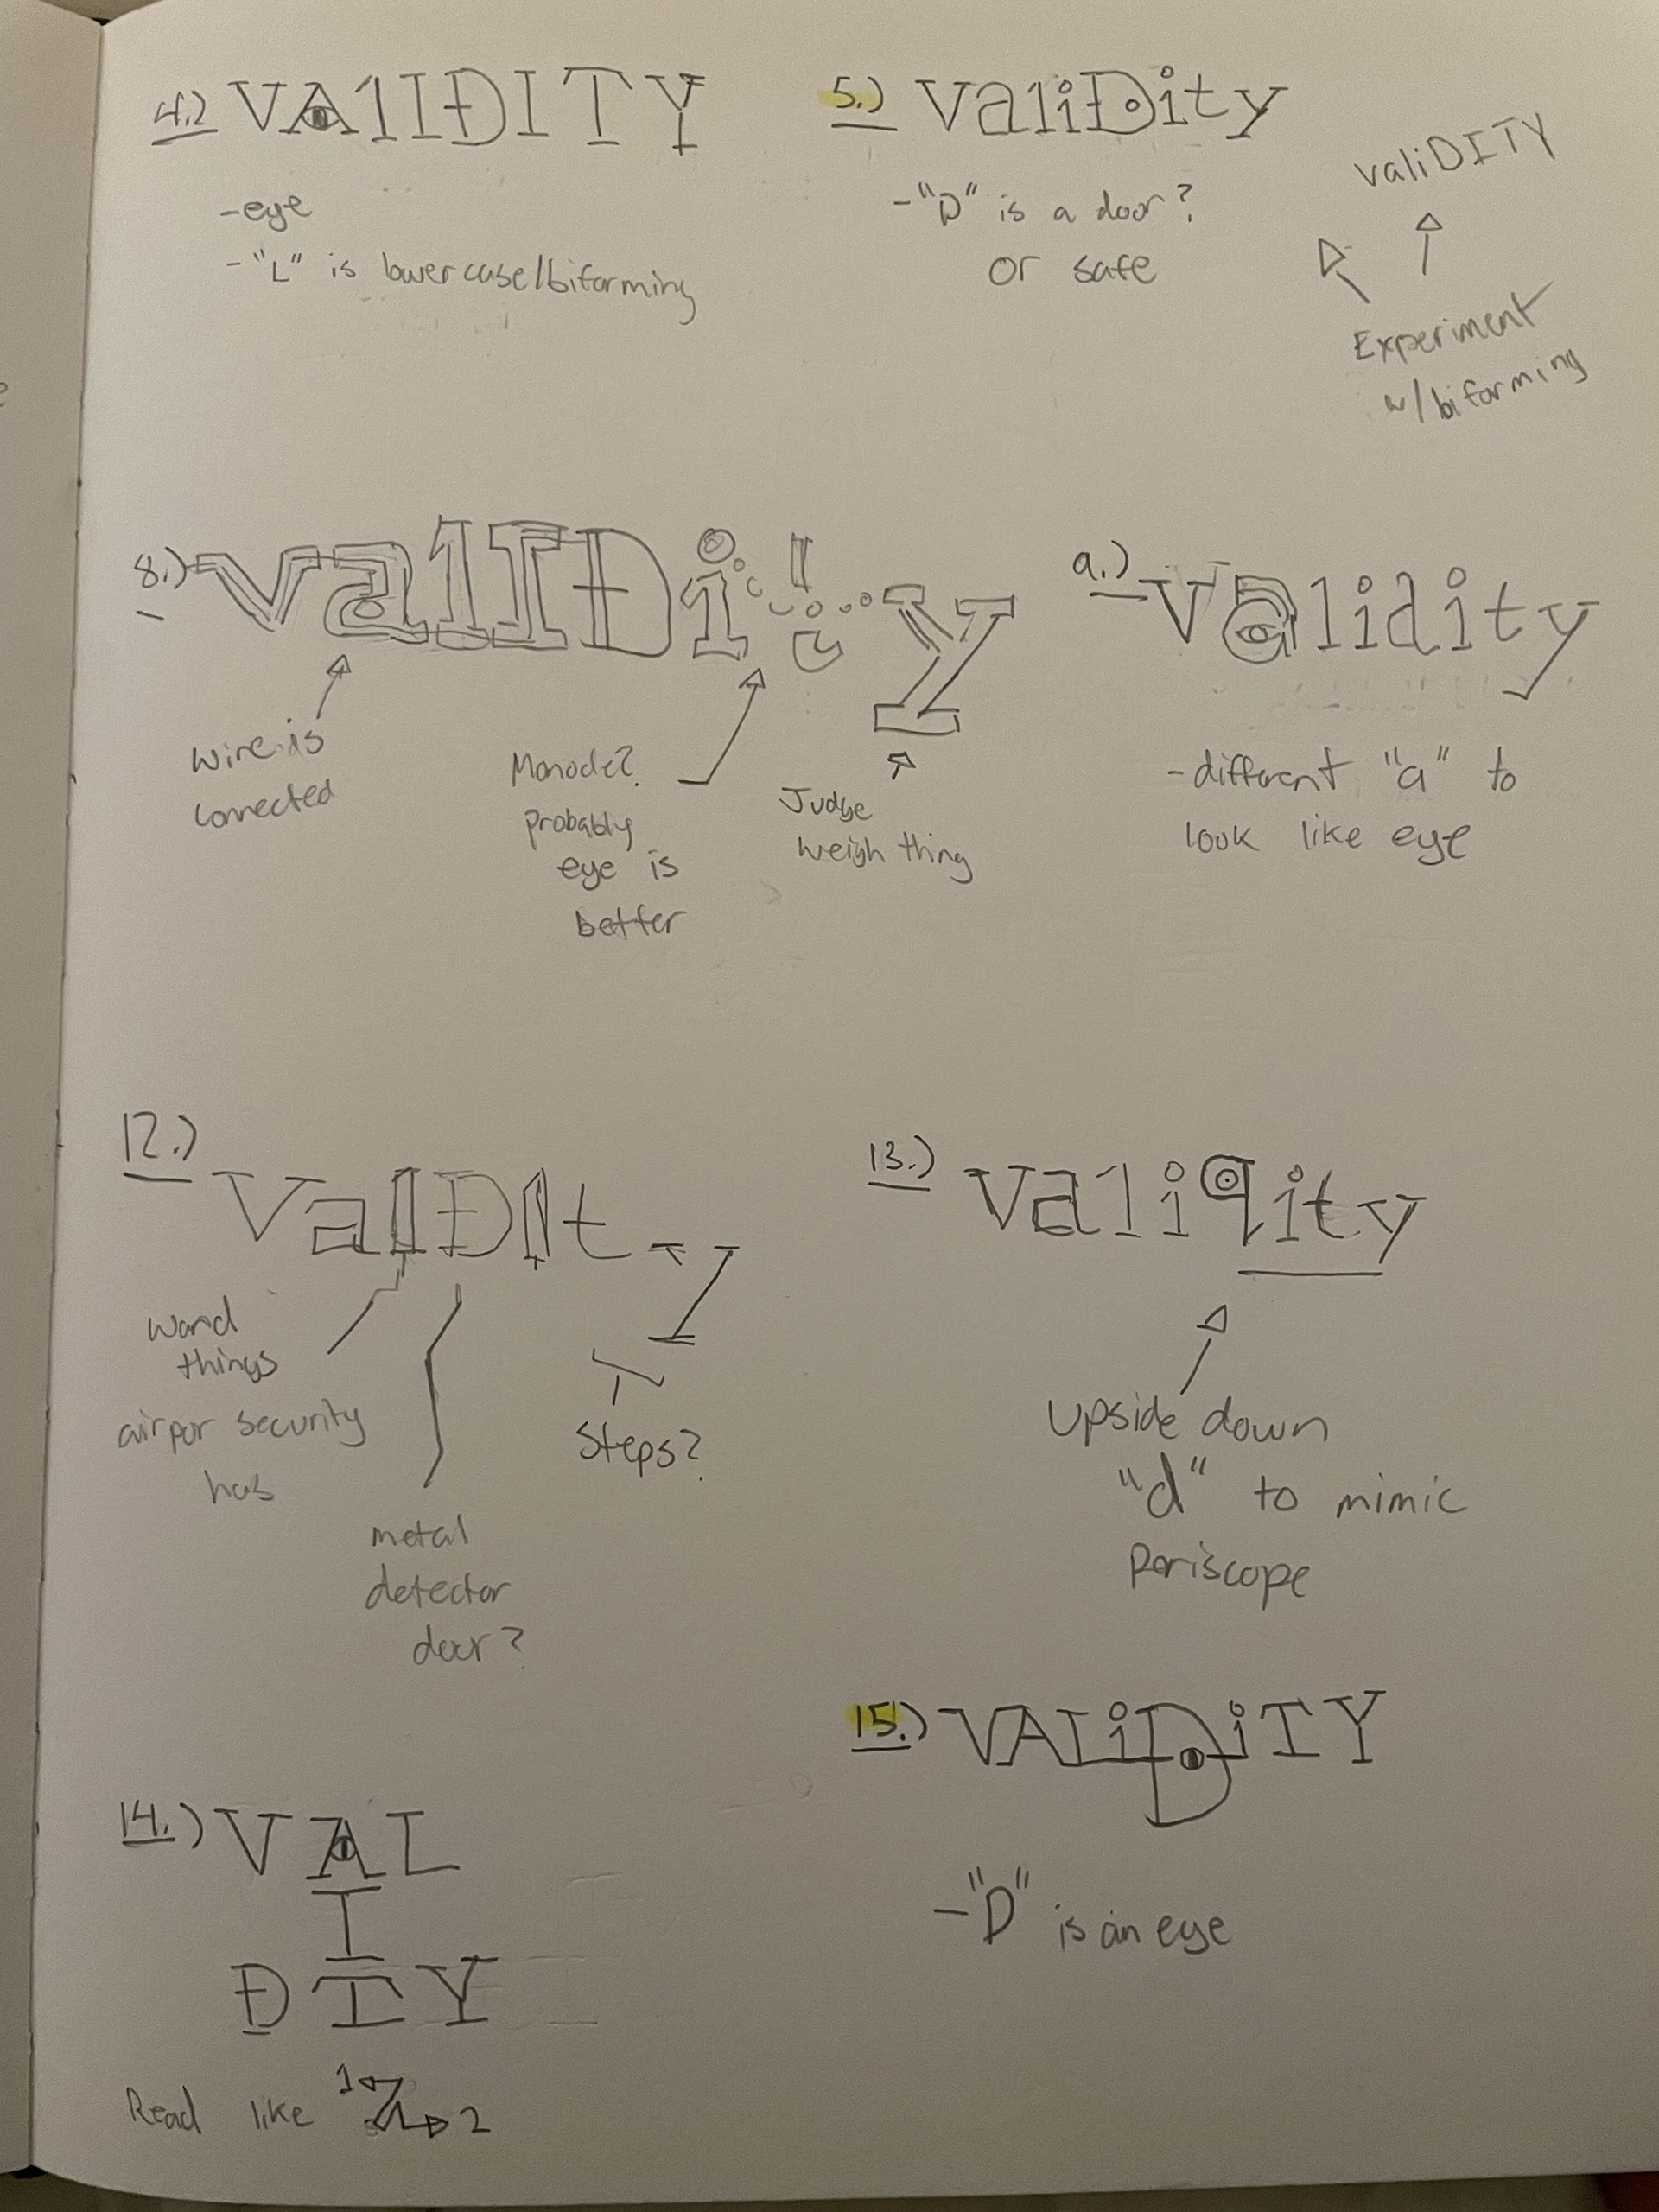 4.) VAlIDITY
-eye
-"L" is lowercase/biforming
5.) valiDity
-"D" is a door?
or safe
valiDITY
Experiment
w/biforming
8.) valIDity
Wire is
connected
Monocle?
probably
eye is
better
Judge
weigh thing
9.) validity
-different "a" to
look like eye
12.) ValIDIty
Wand
things
airpor security
has
metal
detector
door?
Steps?
13.) valiqity
Upside down
"d" to mimic
Periscope
14.) VAL
I
DTY
Read like 1 2
15.) VALiDiTY
-"D" is an eye